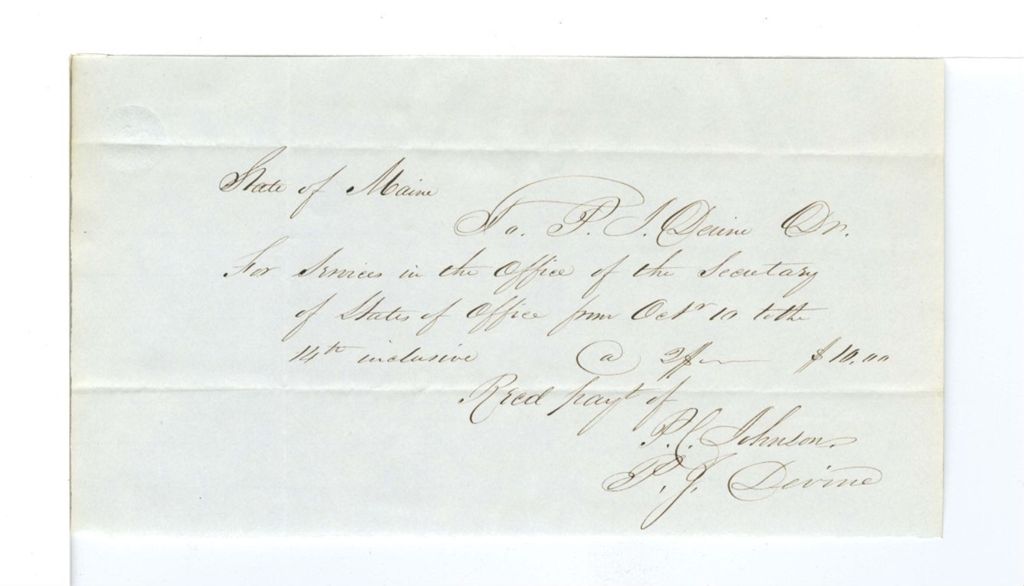 State of Maine
To. P. J. Devine Dr.
For Services in the Office of the Secretary
of States of Office from Octr 10 to the
14th inclusive @ 2 $10.00
Recd payt of
P. C. Johnson
P. J. Devine